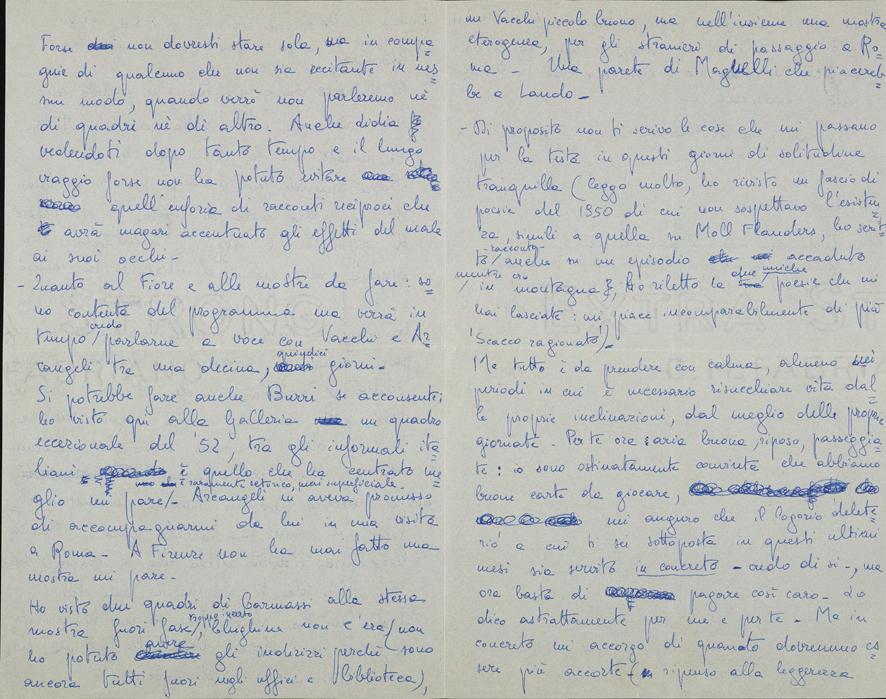 Forse non dovresti stare sola, ma in compa=
gnie di qualcuno che non sia eccitante in nes=
sun modo, quando verrò non parleremo nè
di quadri nè di altro. Anche didia
vedendoti dopo tanto tempo e il lungo
viaggio forse non ha potuto evitare
quell'euforia di racconti reciproci che
avrà magari accentuato gli effetti del male
ai suoi occhi -
- Quanto al Fiore e alle mostre da fare: so=
no contenta del programma ma verrà in
tempo / credo parlarne a voce con Vacchi e Ar=
cangeli tra una decina, quindici giorni -
Si potrebbe fare anche Burri se acconsenti:
ho visto qui alla Galleria un quadro
eccezionale del '52, tra gli informali ita=
liani è quello che ha centrato me=
è raramente retorico, mai superficiale -
glio mi pare /- Arcangeli m'aveva promesso
di accompagnarmi da lui in una visita
a Roma - A Firenze non ha mai fatto una
mostra mi pare -
Ho visto due quadri di Barmassi alla stessa
mostra fuori fase /, Clughine non c'era / non
ho potuto avere gli indirizzi perchè sono
ancora tutti fuori negli uffici e biblioteca),
un Vacchi piccolo buono, ma nell'insieme una mostra
eterogenea, per gli stranieri di passaggio a Ro=
ma - Una parete di Magnelli che piacereb=
be a Lando -
- Di proposito non ti scrivo le cose che mi passano
per la testa in questi giorni di solitudine
tranquilla (leggo molto, ho rivisto un fascio di
poesie del 1950 di cui non sospettavo l'esisten=
za, simili a quella su Moll Flanders, ho scrit=
to / racconto anche su un episodio accaduto
mentre ero
/ in montagna, ho riletto le due uniche poesie che mi
hai lasciate: mi piace incomparabilmente di più
'Scacco ragionato') -
Ma tutto è da prendere con calma, almeno nei
periodi in cui è necessario risucchiare vita dal
le proprie inclinazioni, dal meglio delle proprie
giornate - Per te ora aria buona, riposo, passeggia=
te: io sono ostinatamente convinta che abbiamo
buone carte da giocare,
mi auguro che il logorio delete=
rio a cui ti sei sottoposta in questi ultimi
mesi sia servito in concreto - credo di sì -, ma
ora basta di pagare così caro - Lo
dico astrattamente per me e per te - Ma in
concreto mi accorgo di quanto dovremmo es=
sere più accorte (ripenso alla leggerezza